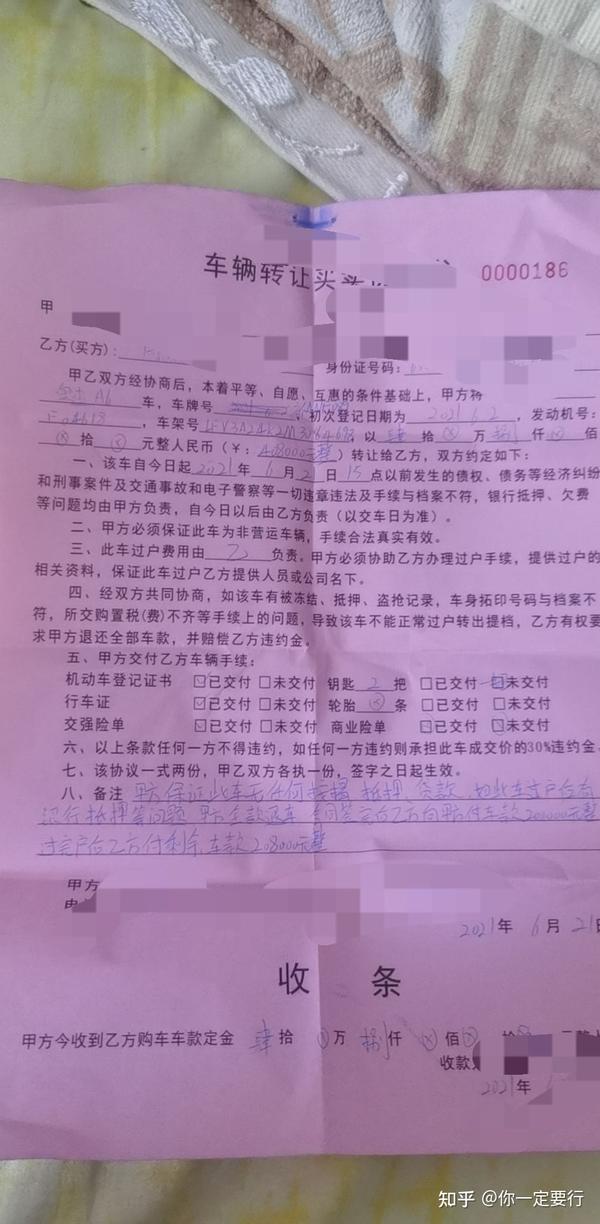 车辆转让买卖
0000186
甲
乙方(买方):
身份证号码:
甲乙双方经协商后，本着平等、自愿、互惠的条件基础上，甲方将
A6 车，车牌号 初次登记日期为 2021.6.2，发动机号:
车架号 以 肆 拾 ⊗ 万 捌 仟 ⊗ 佰
⊗ 拾 ⊗ 元整人民币（￥: 408000元整）转让给乙方，双方约定如下:
一、该车自今日起 2021 年 6 月 2 日 15 点以前发生的债权、债务等经济纠纷
和刑事案件及交通事故和电子警察等一切违章违法及手续与档案不符，银行抵押、欠费
等问题均由甲方负责，自今日以后由乙方负责（以交车日为准）。
二、甲方必须保证此车为非营运车辆，手续合法真实有效。
三、此车过户费用由 乙 负责，甲方必须协助乙方办理过户手续，提供过户的
相关资料，保证此车过户乙方提供人员或公司名下。
四、经双方共同协商，如该车有被冻结、抵押、盗抢记录，车身拓印号码与档案不
符，所交购置税(费)不齐等手续上的问题，导致该车不能正常过户转出提档，乙方有权要
求甲方退还全部车款，并赔偿乙方违约金。
五、甲方交付乙方车辆手续:
机动车登记证书 ☑已交付 □未交付 钥匙 2 把 □已交付 未交付
行车证 ☑已交付 □未交付 轮胎 ⊗ 条 □已交付 □未交付
交强险单 ☑已交付 □未交付 商业险单 ☑已交付 □未交付
六、以上条款任何一方不得违约，如任何一方违约则承担此车成交价的30%违约金
七、该协议一式两份，甲乙双方各执一份，签字之日起生效。
八、备注 甲方保证此车无任何 抵押、贷款、如此车过户后有
银行抵押等问题 甲方全款退车 合同签完后乙方向甲方付车款200000元整
过完户后乙方付剩余车款208000元整
甲方
2021年 6 月 21日
收 条
甲方今收到乙方购车车款定金 肆 拾 ⊗ 万 捌 仟 ⊗ 佰 ⊗
收款
2021年
知乎 @你一定要行